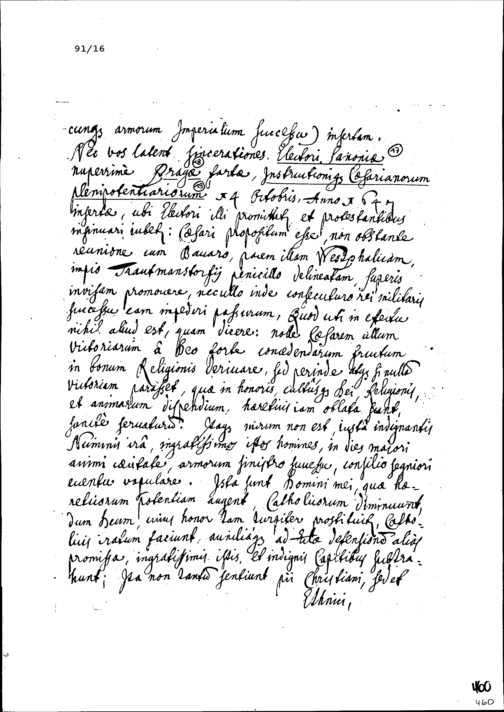 91/16
cunq3 armorum Imperialium successu) infestam.
Nec vos latent sincerationes Electori Saxoniæ (17)
nuperrimè Pragæ factæ, Instructioniq3 Cæsarianorum
plenipotentiariorum (18) 24 Octobris, Anno 1647
insertæ, ubi Electori illi promittit, et protestantibus
insinuari iubet: Cæsari propositum esse, non obstante
reunione cum Bavaro, pacem illam Westphalicam,
impio Trautmanstorfij penicillo delineatam, superis
invisam promovere, nec ullo inde consecuturo rei militaris
successu eam impediri passurum, Quod uti in effectu
nihil aliud est, quam dicere: nolle Cæsarem ullum
victoriarum à Deo forte concedendarum fructum
in bonum Religionis derivare, sed perinde atq3 si nullā
victoriam parasset, quæ in honoris, cultusq3 Dei, Religionis,
et animarum dispendium, hæreticis iam oblata sunt,
sanctè servaturū. Itaq3 mirum non est, iustâ indignantis
Numinis irâ, ingratissimos istos homines, in dies maiori
animi cæcitate, armorum sinistro successu, consilio segniori
eventu vapulare. Ista sunt Domini mei, quæ hæ-
reticorum potentiam augent, Catholicorum diminuunt,
dum Deum, cuius honor tam turpiter prostituit, Catho-
licis iratum faciunt, auxiliaq3 ad defensionē aliàs
promissa, ingratissimis istis, et indignis Capitibus subtra-
hunt; Ita non tantū sentiunt pii Christiani, sed et
Ethnici,
460
460